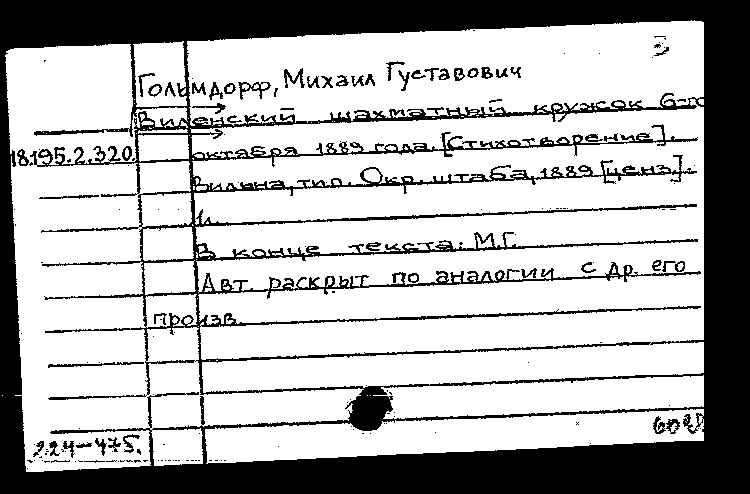 Гольмдорф, Михаил Густавович
Виленский шахматный кружок 6-го
18.195.2.320. октября 1889 года. [Стихотворение].
Вильна, тип. Окр. штаба, 1889 [ценз.].
1 л.
В конце текста: М.Г.
Авт. раскрыт по аналогии с др. его
произв.
224-475.